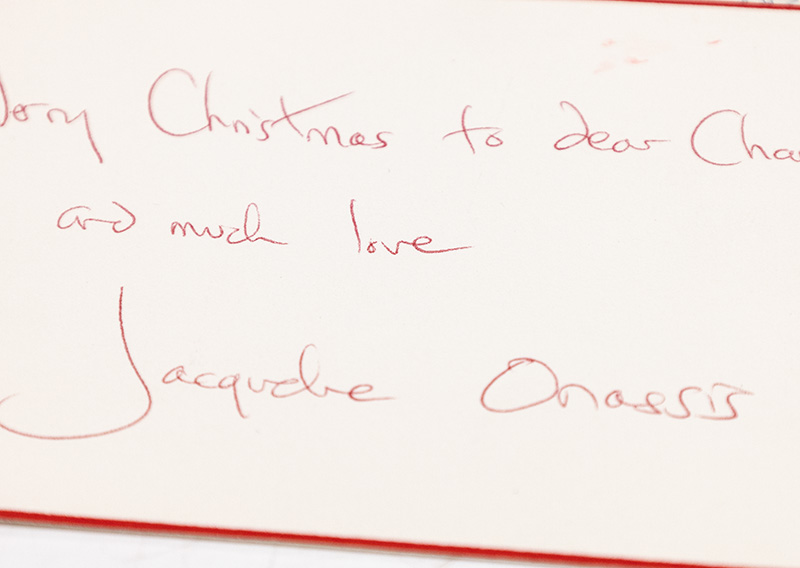 Merry Christmas to dear Cha
and much love
Jacqueline Onassis